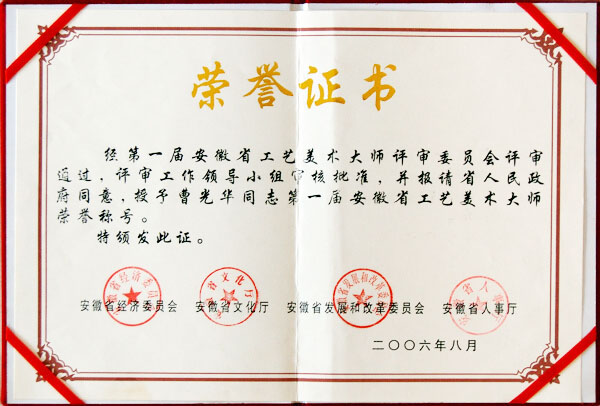 荣誉证书
经第一届安徽省工艺美术大师评审委员会评审
通过，评审工作领导小组审核批准，并报请省人民政
府同意，授予曹光华同志第一届安徽省工艺美术大师
荣誉称号。
特颁发此证。
安徽省经济委员会 安徽省文化厅 安徽省发展和改革委员会 安徽省人事厅
二〇〇六年八月